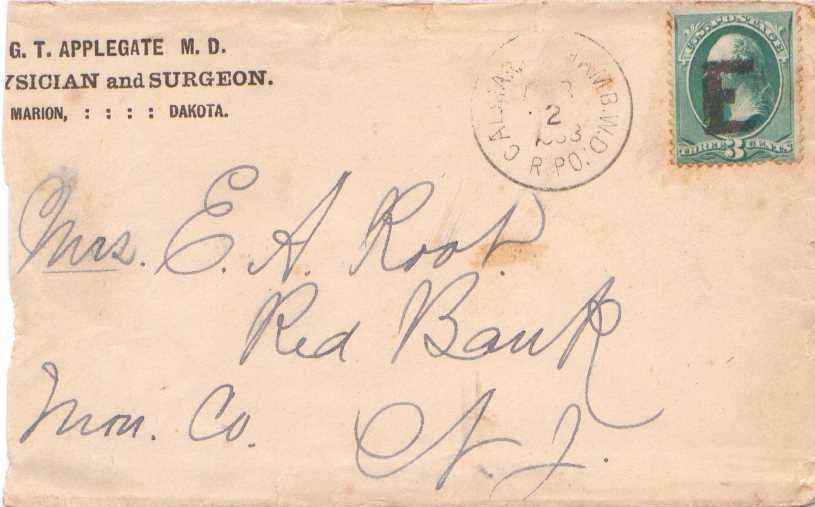 G. T. APPLEGATE M. D.
YSICIAN and SURGEON.
MARION, : : : : DAKOTA.
CALMAR CHAMB.W.D.
2
R.P.O.
E
3
THREE CENTS
Mrs. E. A. Root
Red Bank
Mon. Co. N. J.